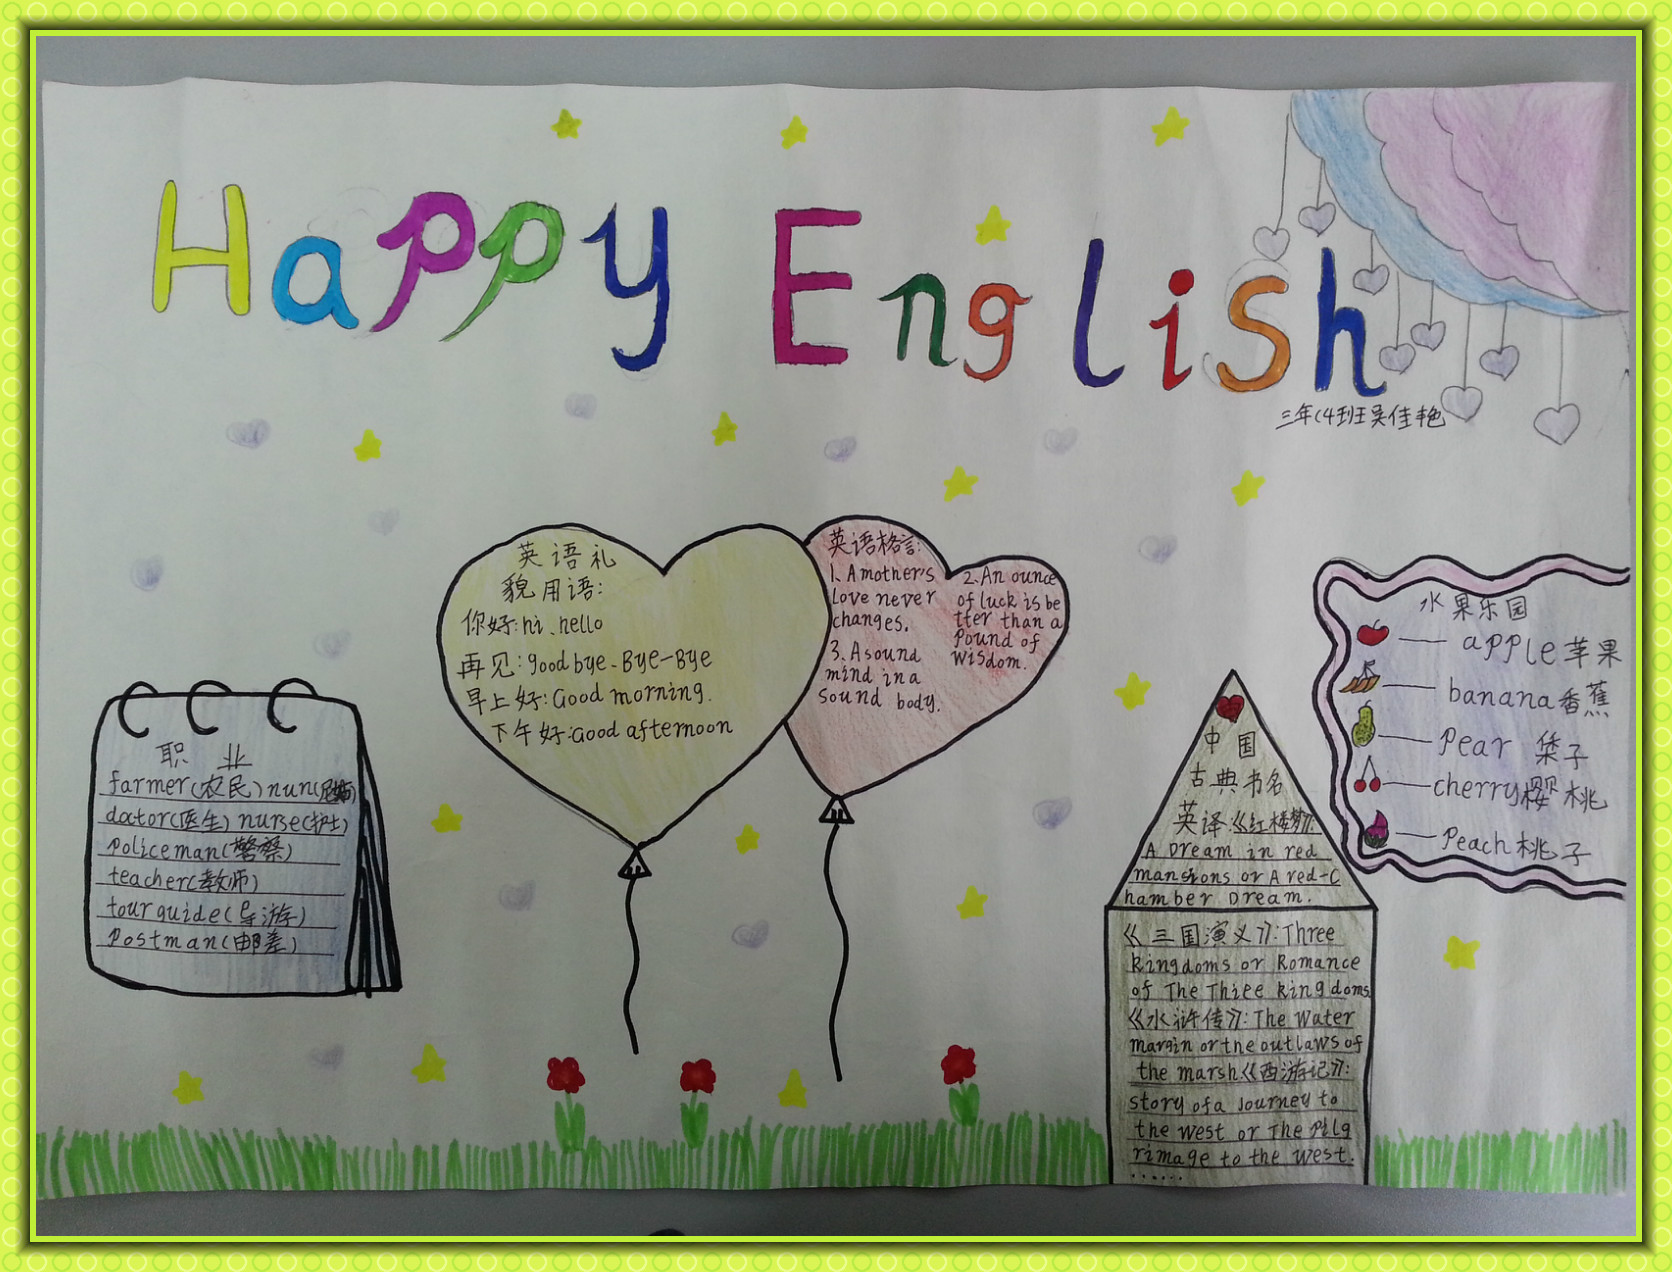 Happy English
三年(4班吴佳艳
英语礼
貌用语:
你好:hi、hello
再见:goodbye、Bye-Bye
早上好:Good morning.
下午好:Good afternoon
英语格言:
1、A mother's
love never
changes.
2、An ounce
of luck is be
tter than a
Pound of
Wisdom.
3、A sound
mind in a
sound body.
职业
farmer(农民) nun(尼姑)
doctor(医生) nurse(护士)
policeman(警察)
teacher(教师)
tour guide(导游)
Postman(邮差)
水果乐园
apple 苹果
banana 香蕉
Pear 梨子
cherry 樱桃
Peach 桃子
中国
古典书名
英译:《红楼梦》:
A Dream in red
mansions or A red-C
hamber Dream.
《三国演义》:Three
kingdoms or Romance
of The Three kingdoms
《水浒传》:The Water
margin or the outlaws of
the marsh《西游记》:
story of a Journey to
the west or The Pilg
rimage to the west.
......